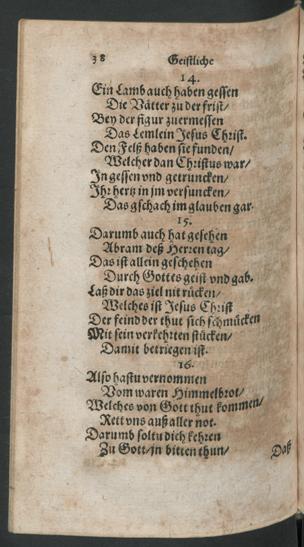 38 Geistliche
14.
Ein Lamb auch haben gessen
Die Vätter zu der frist/
Bey der figur zuermessen
Das Lemlein Jesus Christ.
Den Felß haben sie funden/
Welcher dan Christus war/
In gessen vnd getruncken/
Ihr hertz in jm versuncken/
Das gschach im glauben gar.
15.
Darumb auch hat gesehen
Abram deß Herren tag/
Das ist allein geschehen
Durch Gottes geist vnd gab.
Laß dir das ziel nit rücken/
Welches ist Jesus Christ
Der feind der thut sich schmücken
Mit sein verkehrten stücken/
Damit betriegen ist.
16.
Also hastu vernommen
Vom waren Himmelbrot/
Welches von Gott thut kommen/
Rett vns auß aller not.
Darumb soltu dich kehren
Zu Gott/jn bitten thun/
Daß